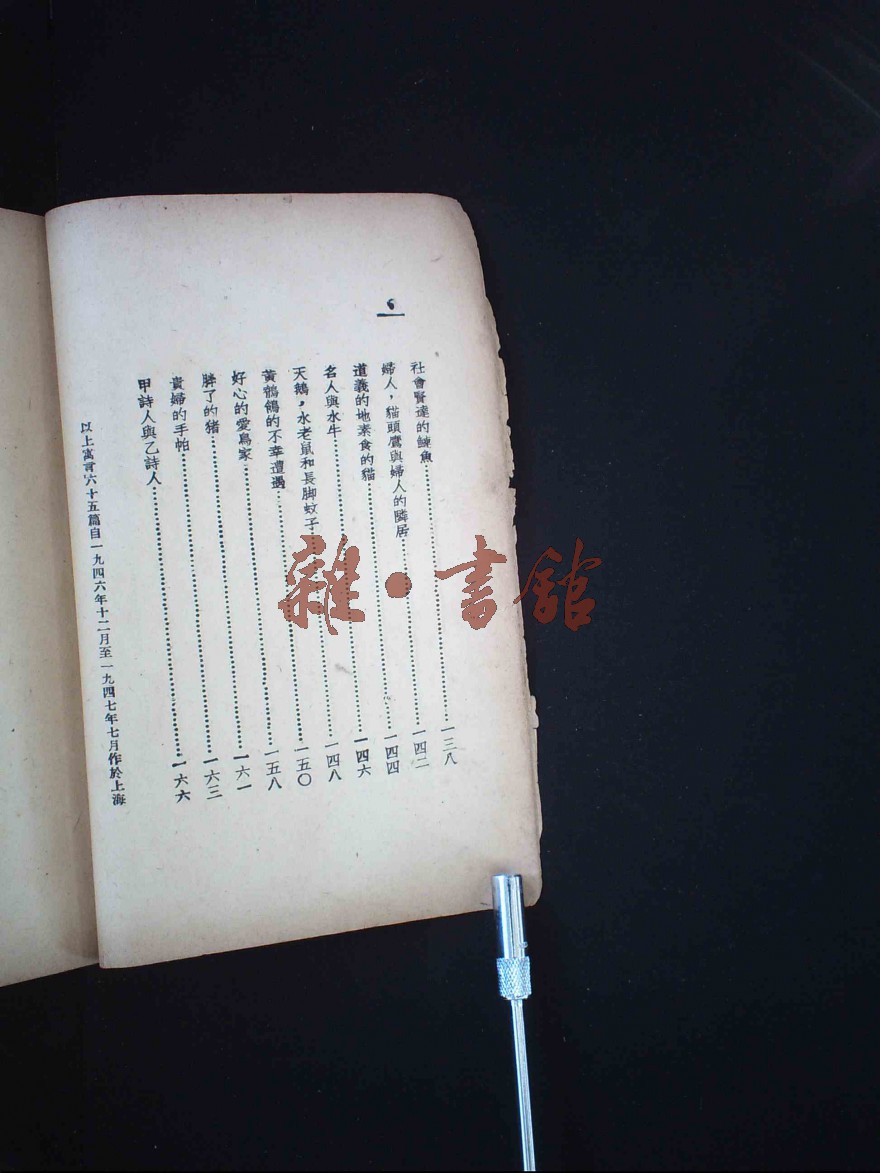 社會賢達的鰱魚……一三八
婦人，貓頭鷹與婦人的隣居……一四二
道義的地素食的貓……一四四
名人與水牛……一四六
天鵝，水老鼠和長脚蚊子……一四八
黃鶺鴒的不幸遭遇……一五〇
好心的愛鳥家……一五八
胖了的猪……一六一
貴婦的手帕……一六三
甲詩人與乙詩人……一六六
以上寓言六十五篇自一九四六年十二月至一九四七年七月作於上海
雜·書館